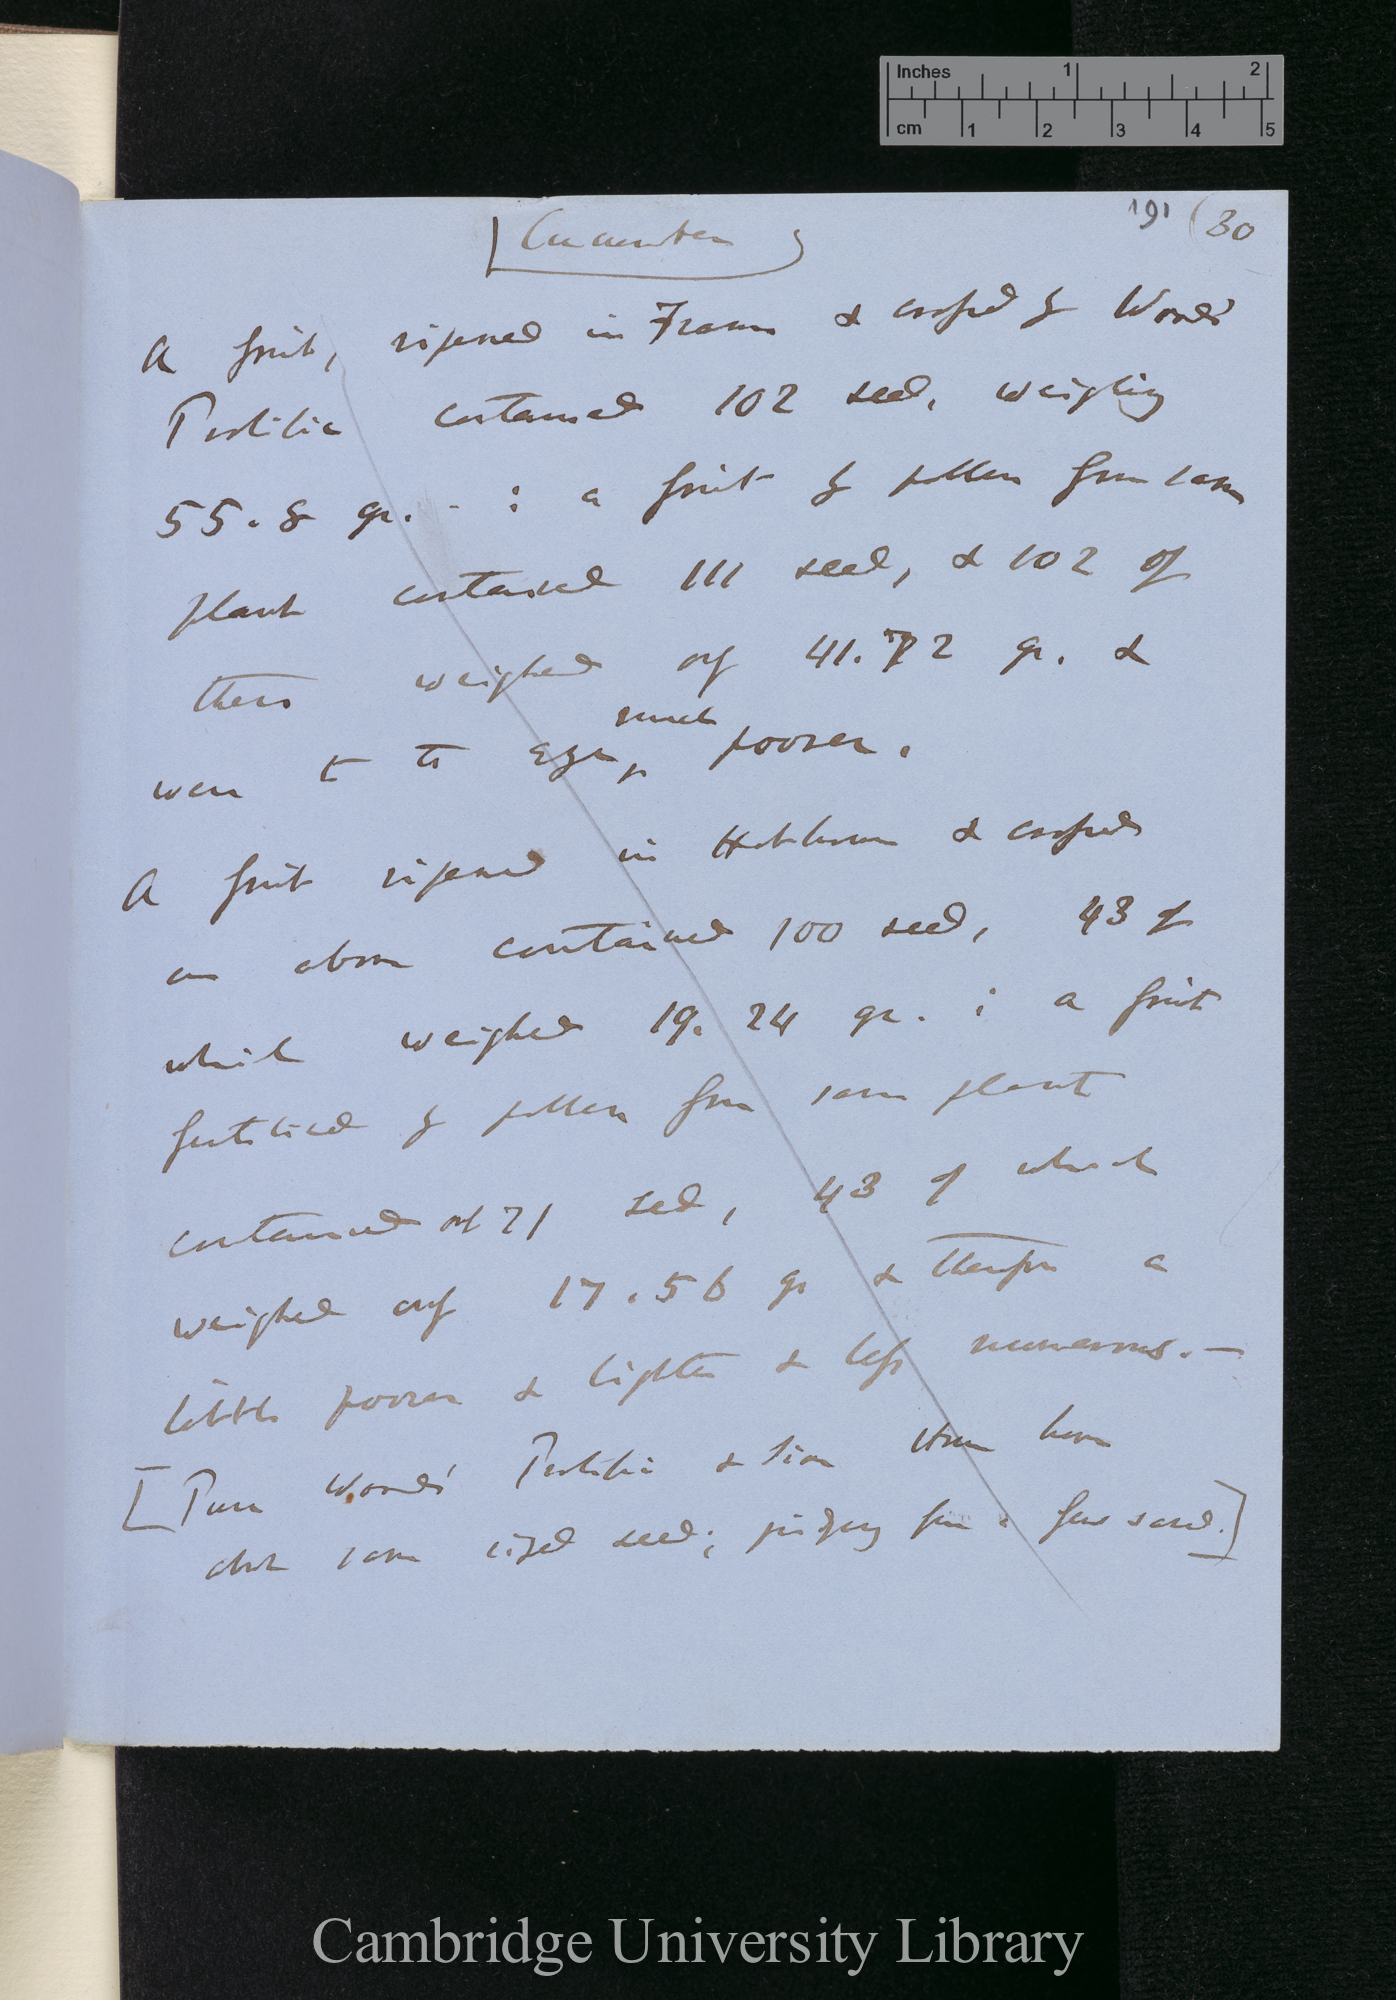 Inches 1 2
cm 1 2 3 4 5
191 (30
Cucumber
A fruit, ripened in Frame & crossed by Woods'
Prolific contained 102 seed, weighing
55.8 gr. : a fruit by pollen from same
plant contained 111 seed, & 102 of
these weighed only 41.72 gr. &
were to the eye much poorer.
A fruit ripened in Hothouse & crossed
as above contained 100 seed, 43 of
which weighed 19.24 gr. : a fruit
fertilised by pollen from same plant
contained only 71 seed, 43 of which
weighed only 17.56 gr & therefore a
little poorer & lighter & less numerous.—
[Pure Woods' Prolific & Sion House have
about same sized seed; judging from a few saved.]
Cambridge University Library